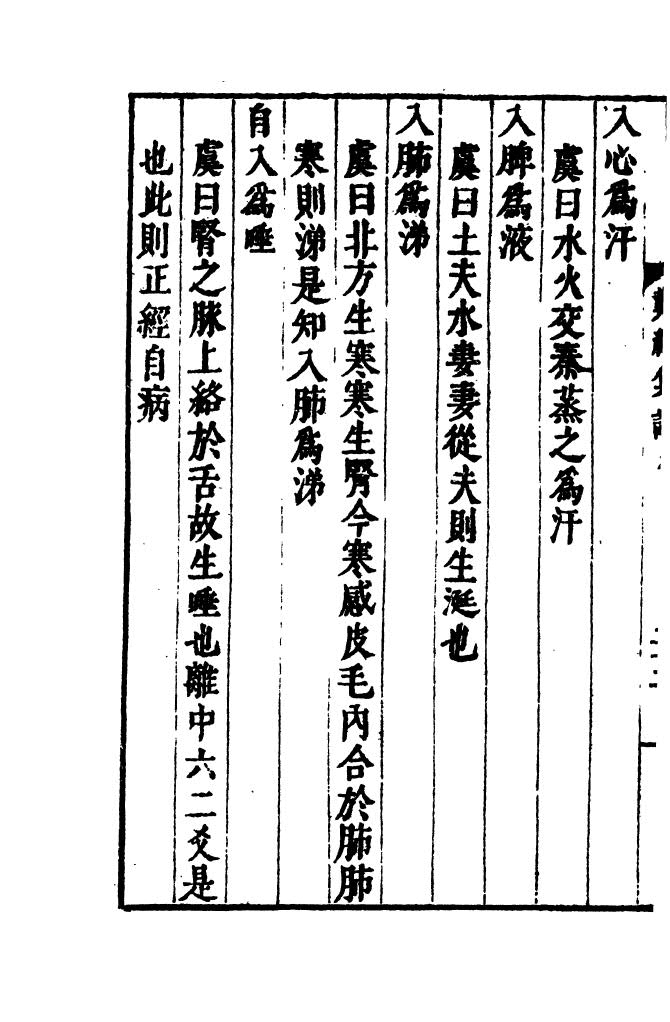 入心爲汗
虞曰水火交泰蒸之爲汗
入脾爲液
虞曰土夫水妻妻從夫則生涎也
入肺爲涕
虞曰非方生寒寒生腎今寒感皮毛内合於肺肺
寒則涕是知入肺爲涕
自入爲唾
虞曰腎之脉上絡於舌故生唾也離中六二爻是
也此則正經自病